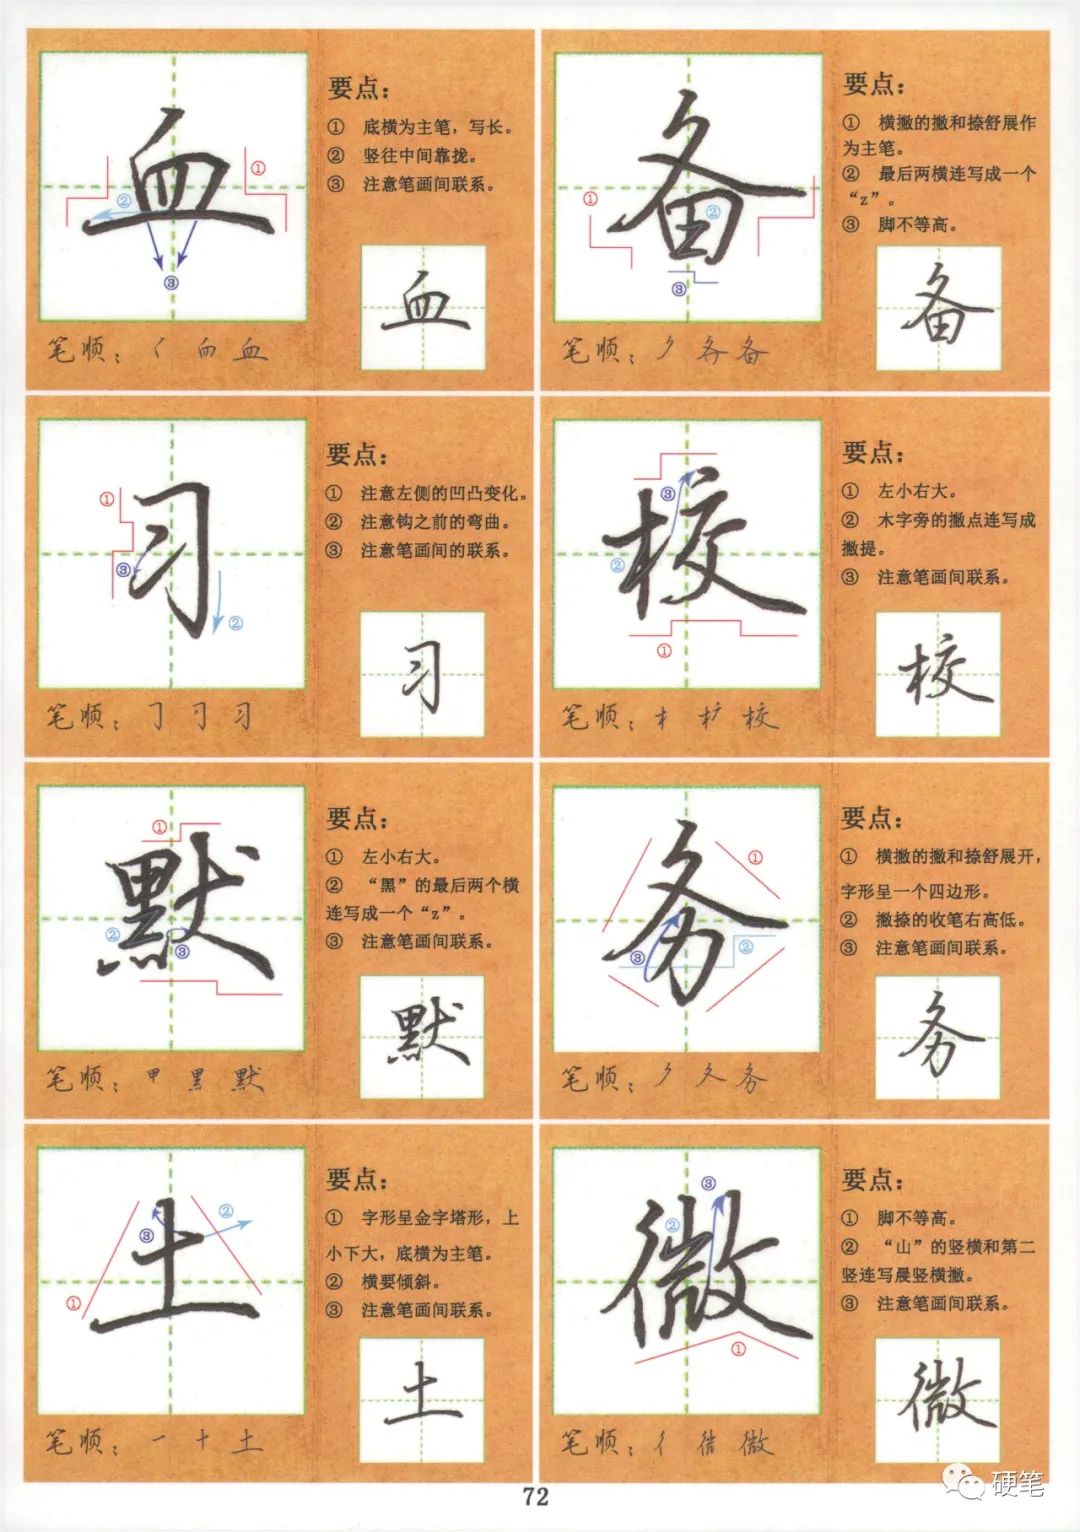 血
要点：
① 底横为主笔，写长。
② 竖往中间靠拢。
③ 注意笔画间联系。
①
②
③
血
笔顺：
血
备
要点：
① 横撇的撇和捺舒展作
为主笔。
② 最后两横连写成一个
“z”。
③ 脚不等高。
①
②
③
备
笔顺：
备
习
要点：
① 注意左侧的凹凸变化。
② 注意钩之前的弯曲。
③ 注意笔画间的联系。
①
③
②
习
笔顺：
习
校
要点：
① 左小右大。
② 木字旁的撇点连写成
撇提。
③ 注意笔画间联系。
③
②
①
校
笔顺：
校
默
要点：
① 左小右大。
② “黑”的最后两个横
连写成一个“z”。
③ 注意笔画间联系。
①
②
③
默
笔顺：甲 黑 默
务
要点：
① 横撇的撇和捺舒展开，
字形呈一个四边形。
② 撇捺的收笔右高低。
③ 注意笔画间联系。
①
②
③
务
笔顺：丿 夂 务
土
要点：
① 字形呈金字塔形，上
小下大，底横为主笔。
② 横要倾斜。
③ 注意笔画间联系。
②
③
①
土
笔顺：一 十 土
微
要点：
① 脚不等高。
② “山”的竖横和第二
竖连写晨竖横撇。
③ 注意笔画间联系。
③
②
①
微
笔顺：
微
72
硬笔